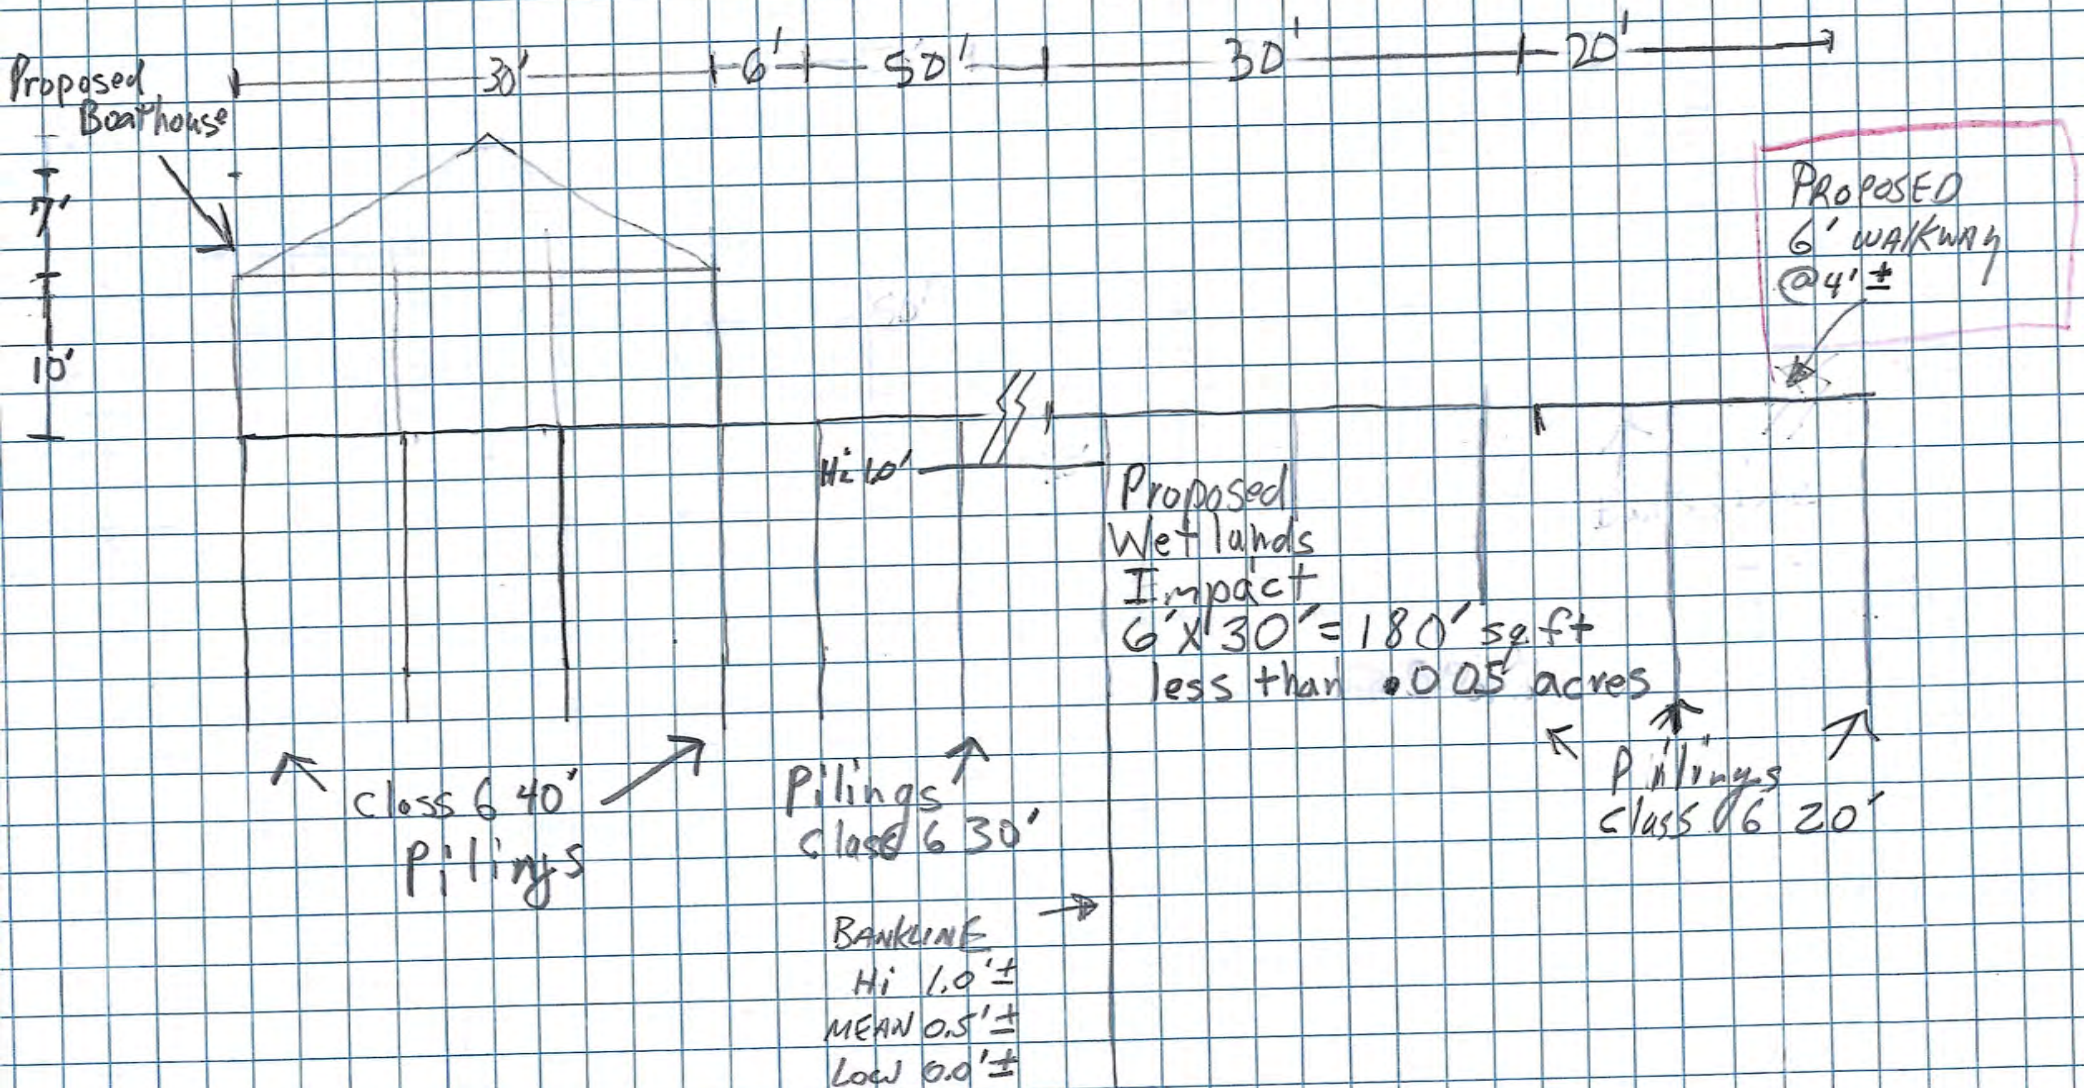 30' 6' 50' 30' 20'
Proposed
Boathouse
7'
10'
PROPOSED
6' WALKWAY
@4' ±
Hi 1.0'
Proposed
Wetlands
Impact
6' X 30' = 180' sq ft
less than .005 acres
class 6 40'
Pilings
Pilings
class 6 30'
Pilings
class 6 20'
BANKLINE
Hi 1.0' ±
MEAN 0.5' ±
LOW 0.0' ±